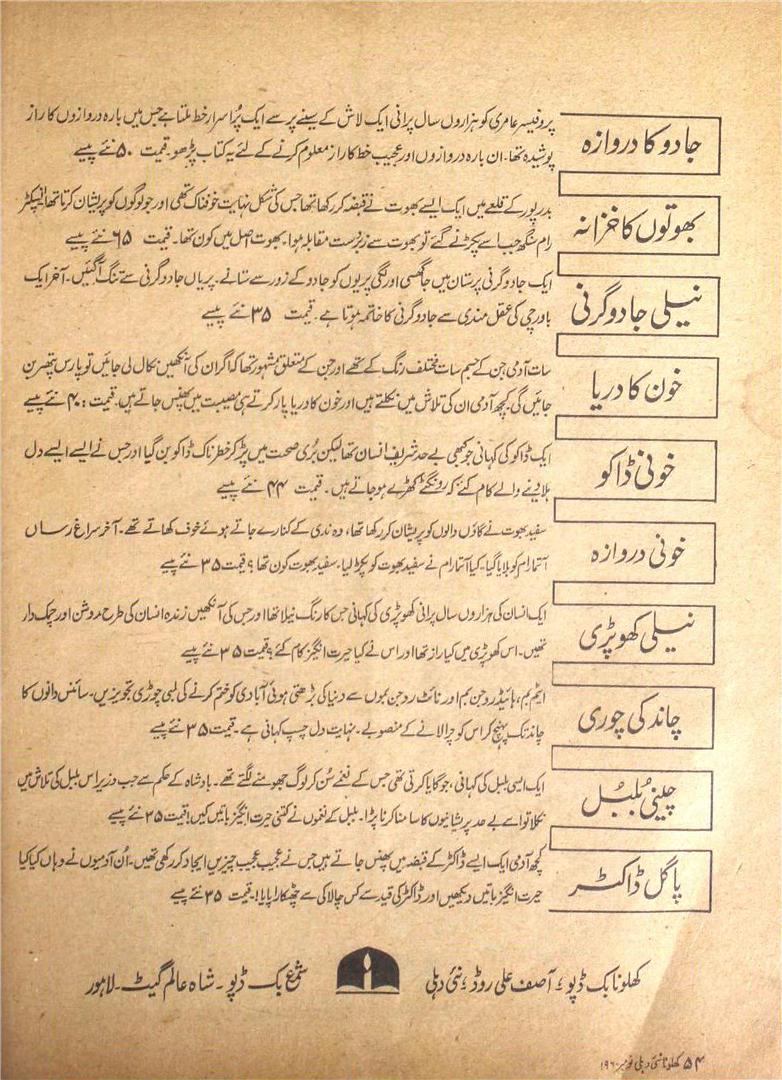 جادو کا دروازہ
پروفیسر عامری کو ہزاروں سال پرانی ایک لاش کے سینے پر سے ایک پُراسرار خط ملتا ہے جس میں بارہ دروازوں کا راز
پوشیدہ تھا۔ ان بارہ دروازوں اور عجیب خط کا راز معلوم کرنے کے لئے یہ کتاب پڑھو۔ قیمت ۵۰ نئے پیسے
بھوتوں کا خزانہ
بدرپور کے قلعے میں ایک ایسے بھوت نے قبضہ کر رکھا تھا جس کی شکل نہایت خوفناک تھی اور جو لوگوں کو پریشان کرتا تھا انسپکٹر
رام سنگھ جب اسے پکڑنے گئے تو بھوت سے زبردست مقابلہ ہوا۔ بھوت اصل میں کون تھا۔ قیمت ۶۵ نئے پیسے
نیلی جادوگرنی
ایک جادوگرنی پرستان میں جا گھسی اور لگی پریوں کو جادو کے زور سے ستانے۔ پریاں جادوگرنی سے تنگ آ گئیں۔ آخر ایک
باورچی کی عقل مندی سے جادوگرنی کا خاتمہ ہوتا ہے۔ قیمت ۳۵ نئے پیسے
خون کا دریا
سات آدمی جن کے جسم سات مختلف رنگ کے تھے اور جن کے متعلق مشہور تھا کہ اگر ان کی آنکھیں نکال لی جائیں تو پارس پتھر بن
جائیں گی۔ کچھ آدمی ان کی تلاش میں نکلتے ہیں اور خون کا دریا پار کرتے ہی مصیبت میں پھنس جاتے ہیں۔ قیمت ۴۰ نئے پیسے
خونی ڈاکو
ایک ڈاکو کی کہانی جو کبھی بے حد شریف انسان تھا لیکن بُری صحبت میں پڑ کر خطرناک ڈاکو بن گیا اور جس نے ایسے ایسے دل
ہلا دینے والے کام کئے کہ رونگٹے کھڑے ہو جاتے ہیں۔ قیمت ۴۴ نئے پیسے
خونی دروازہ
سفید بھوت نے گاؤں والوں کو پریشان کر رکھا تھا، وہ ندی کے کنارے جاتے ہوئے خوف کھاتے تھے۔ آخر سراغ رساں
آتما رام کو بلایا گیا۔ کیا آتما رام نے سفید بھوت کو پکڑ لیا۔ سفید بھوت کون تھا؟ قیمت ۳۵ نئے پیسے
نیلی کھوپڑی
ایک انسان کی ہزاروں سال پرانی کھوپڑی کی کہانی جس کا رنگ نیلا تھا اور جس کی آنکھیں زندہ انسان کی طرح روشن اور چمک دار
تھیں۔ اس کھوپڑی میں کیا راز تھا اور اس نے کیا حیرت انگیز کام کئے؟ قیمت ۳۵ نئے پیسے
چاند کی چوری
ایٹم بم، ہائیڈروجن بم اور نائٹروجن بموں سے دنیا کی بڑھتی ہوئی آبادی کو ختم کرنے کی لمبی چوڑی تجویزیں۔ سائنس دانوں کا
چاند تک پہنچ کر اس کو چرا لانے کے منصوبے۔ نہایت دل چسپ کہانی ہے۔ قیمت ۳۵ نئے پیسے
چینی بُلبُل
ایک ایسی بلبل کی کہانی، جو گایا کرتی تھی جس کے نغمے سُن کر لوگ جھومنے لگتے تھے۔ بادشاہ کے حکم سے جب وزیر اس بلبل کی تلاش میں
نکلا تو اسے بے حد پریشانیوں کا سامنا کرنا پڑا۔ بلبل کے نغموں نے کتنی حیرت انگیز باتیں کیں! قیمت ۳۵ نئے پیسے
پاگل ڈاکٹر
کچھ آدمی ایک ایسے ڈاکٹر کے قبضہ میں پھنس جاتے ہیں جس نے عجیب عجیب چیزیں ایجاد کر رکھی تھیں۔ اُن آدمیوں نے وہاں کیا کیا
حیرت انگیز باتیں دیکھیں اور ڈاکٹر کی قید سے کس چالاکی سے چھٹکارا پایا!۔ قیمت ۳۵ نئے پیسے
کھلونا بک ڈپو، آصف علی روڈ، نئی دہلی
شمع بک ڈپو۔ شاہ عالم گیٹ۔ لاہور
۵۴ کھلونا نئی دہلی نومبر ۱۹۶۰